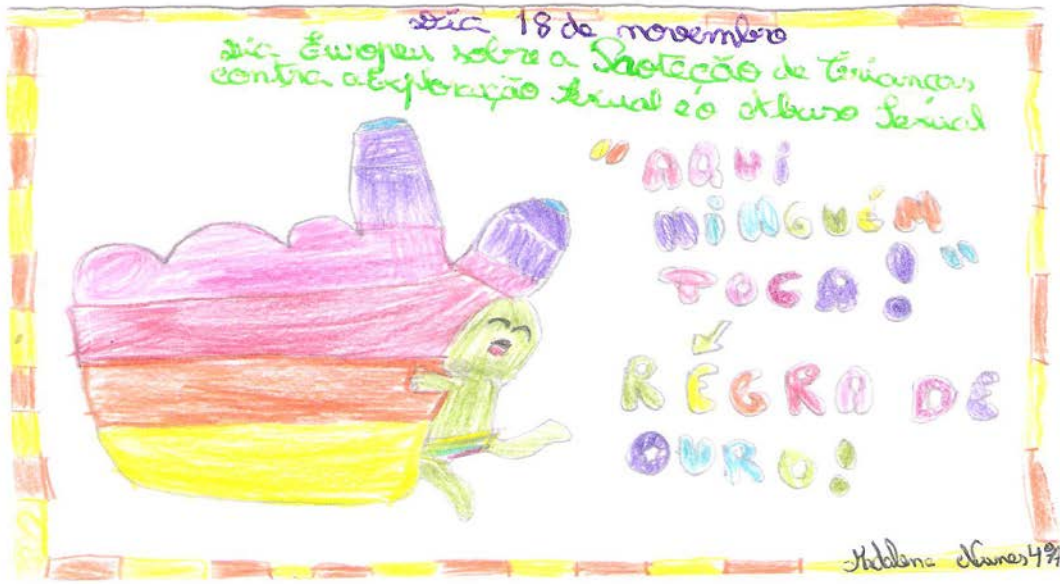 Dia 18 de novembro
Dia Europeu sobre a Proteção de Crianças
contra a Exploração Sexual e o Abuso Sexual
"AQUI
NINGUÉM
TOCA!"
RÉGRA DE
OURO!
Madalena Nunes 4º